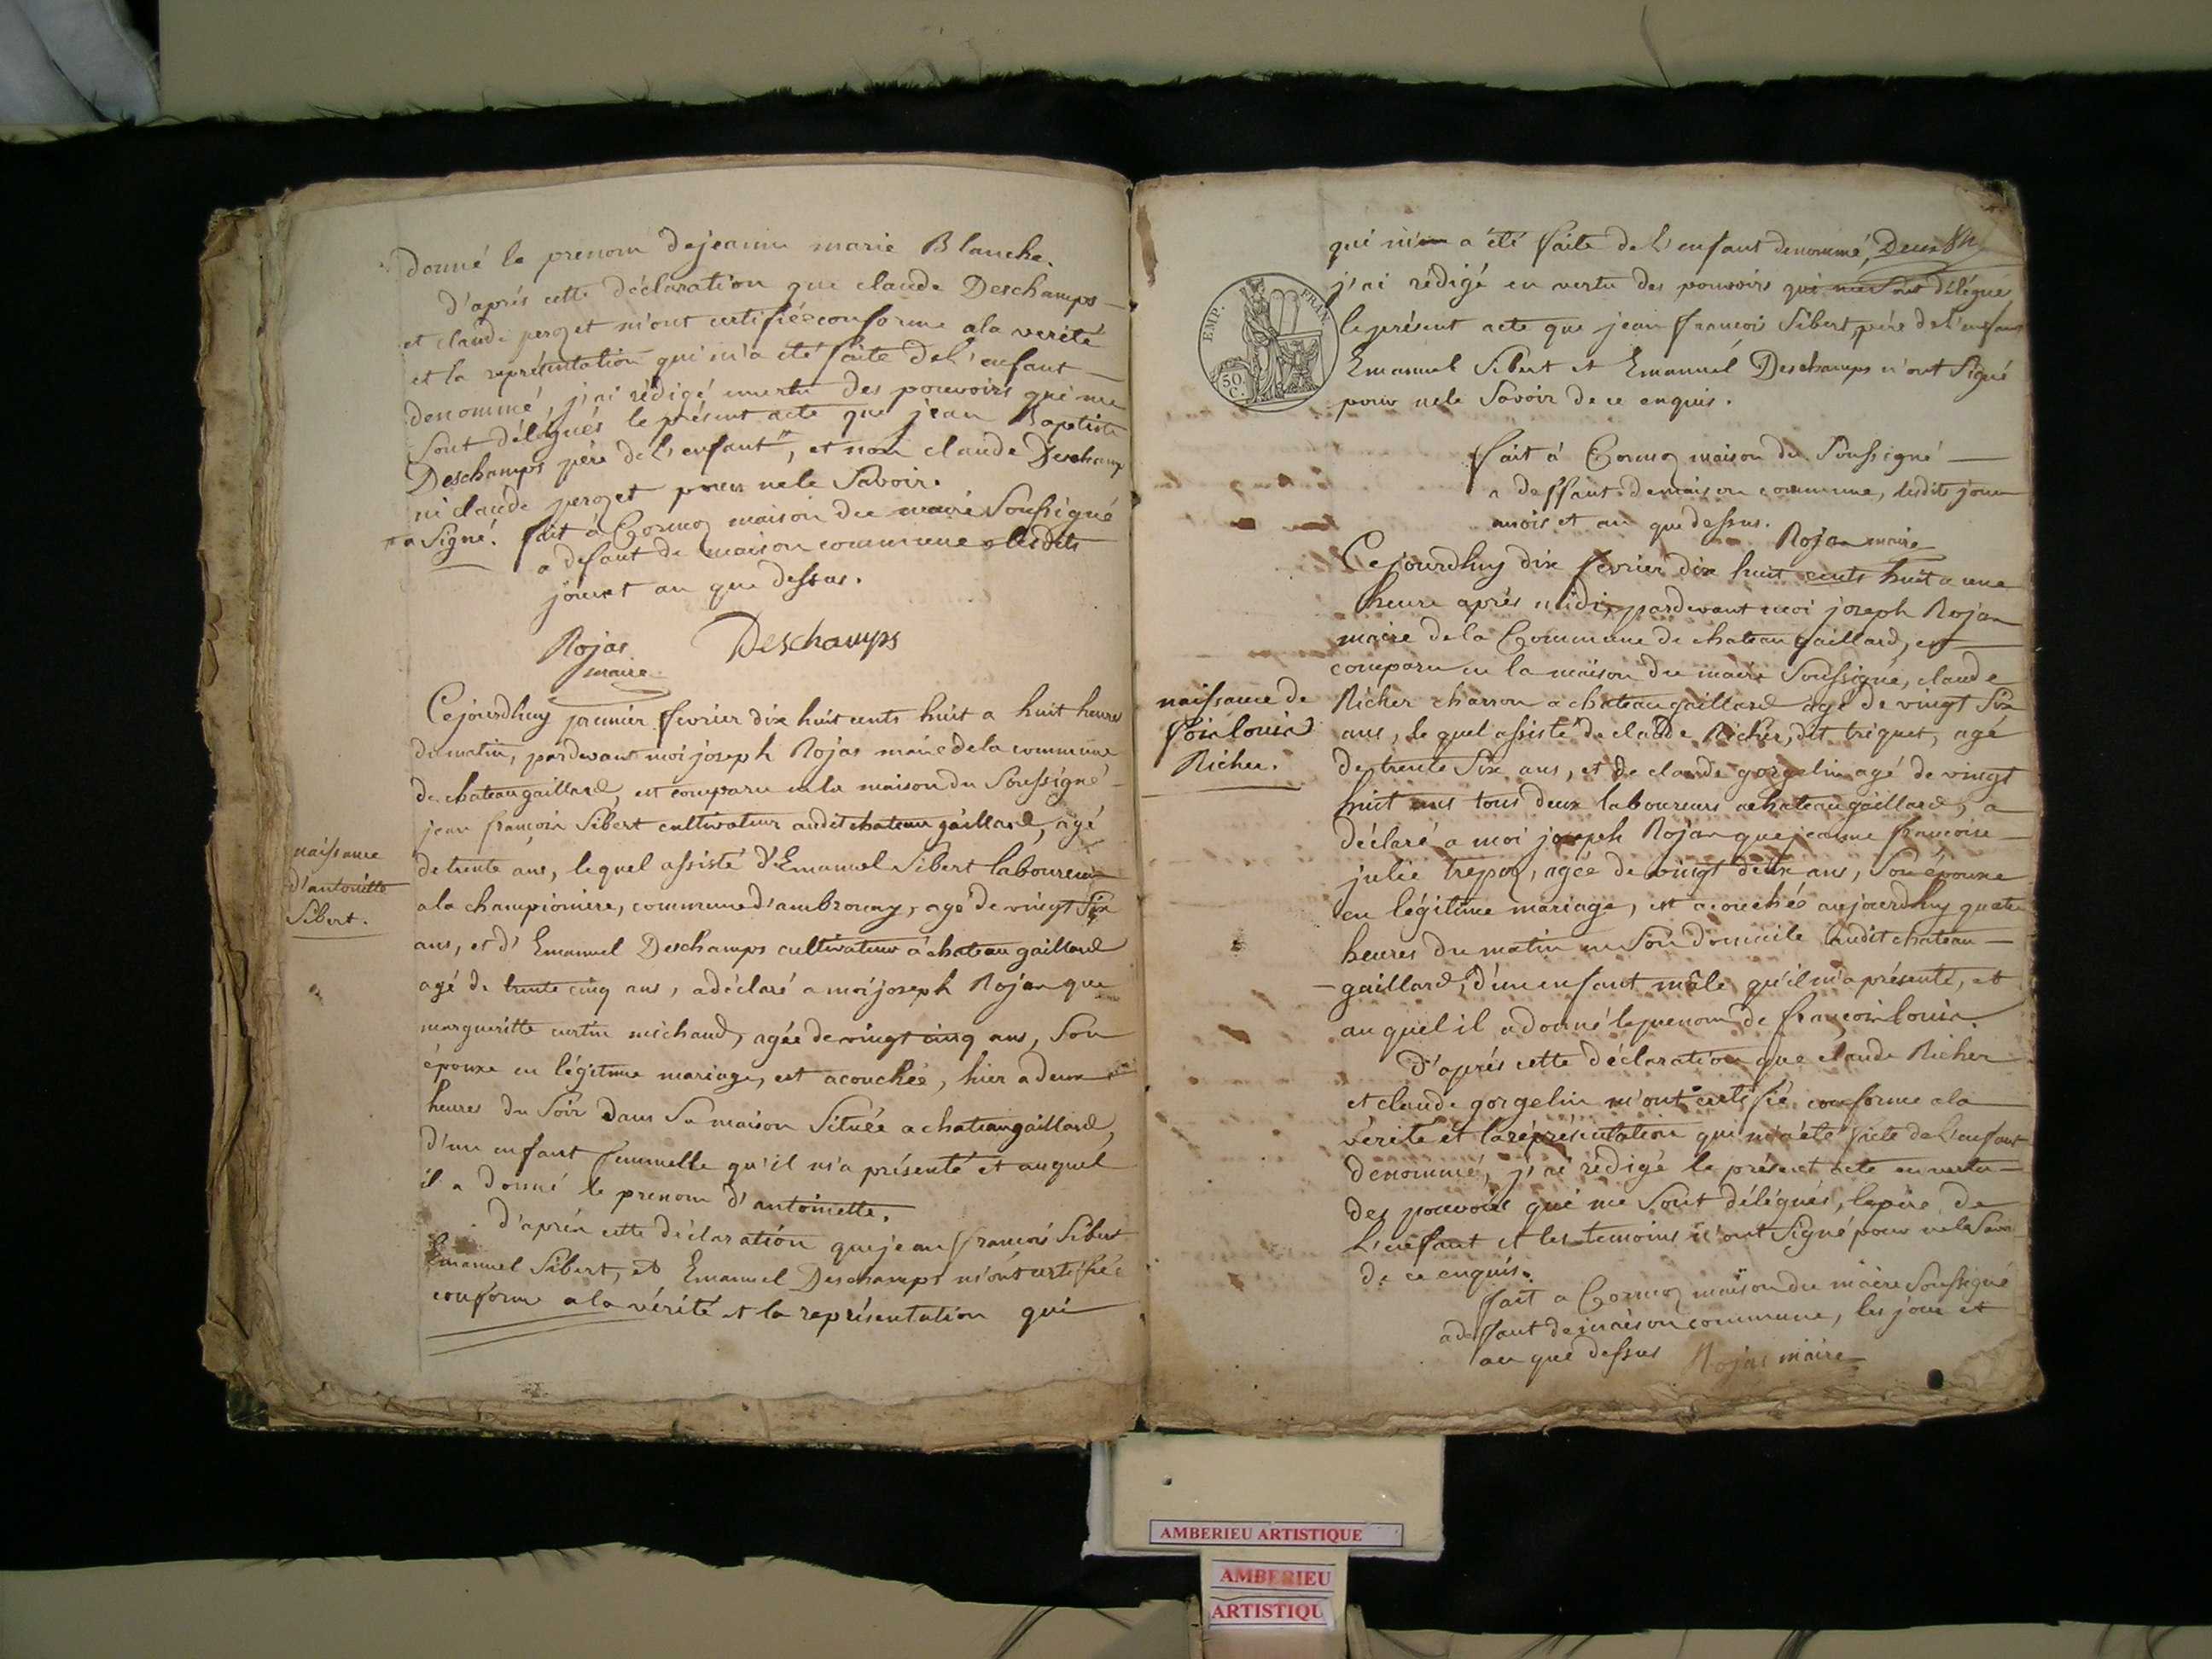 donné le prenom dejeanne marie Blanche.
d'aprés cette déclaration que claude Deschamps
et claude perozet m'ont certifiée conforme ala verité
et la représentation qui m'a été faite del'enfant
denommé, j'ai rédigé envertu des pouvoirs qui me
sont délégués le présent acte que jean Baptiste
Deschamps pére del'enfant, et non claude Deschamp
ni claude perozet pour nele savoir.
a signé. fait à Cormoz maison du maire soussigné
a defaut de maison commune lesdits
jouret an que dessus.
Rojas Deschamps
maire
Cejourdhuy premier fevrier dix huit cents huit a huit heures
dumatin, pardevant moi joseph Rojas maire dela commune
de chateaugaillard, est comparu enla maison du soussigné
jean francois Sibert cultivateur audit chateau gaillard, agé
naissance
d'antoinette
Sibert.
de trente ans, lequel assisté d'Emanuel Sibert laboureur
ala championiere, commune d'ambronay, agé de vingt six
ans, et d'Emanuel Deschamps cultivateur à chateau gaillard
agé de trente cinq ans, adéclaré a moi joseph Rojas que
margueritte curtin michaud, agée de vingt cinq ans, son
épouse en légitime mariage, est acouchée, hier a deux
heures du soir dans sa maison située a chateaugaillard,
d'un enfant femmelle qu'il m'a présenté et auquel
il a donné le prenom d'antoinette.
d'aprés cette déclaration quejean francois Sibert
Emanuel Sibert, et Emanuel Deschamps m'ont certifiée
conforme ala vérité et la représentation qui
qui m'en a été faite de l'enfant denommé,
j'ai rédigé en vertu des pouvoirs qui me sont délégués
EMP. FRAN.
50
C.
leprésent acte que jean francois Sibert, pére del'enfant
Emanuel Sibert et Emanuel Deschamps n'ont signé
pour nele savoir de ce enquis.
fait à Cormoz maison du soussigné
a deffaut demaison commune, lesdits jour
mois et an que dessus.
Rojas maire
Cejourdhuy dix fevrier dix huit cents huit a une
heure aprés midi, pardevant moi joseph Rojas
maire dela Commune de chateau gaillard, est
comparu en la maison du maire soussigné, claude
naissance de
louis
Richer.
Richer charron a chateaugaillard agé de vingt six
ans, lequel assisté de claude Richer, dit triquet, agé
de trente six ans, et de claude gorgelin agé de vingt
huit ans tous deux laboureurs achateaugaillard, a
déclaré a moi joseph Rojas que jeanne francoise
julie trepoz, agée de vingt deux ans, son épouse
en légitime mariage, est acouchée aujourdhuy quatre
heures du matin en son domicile audit chateau
gaillard, d'un enfant mâle qu'il m'a présenté, et
auquel il adonné leprenom de françois louis.
d'aprés cette déclaration que claude Richer
et claude gorgelin m'ont certifié conforme ala
vérité et la représentation qui m'a été faite de l'enfant
denommé, j'ai rédigé le présent acte en vertu
des pouvoirs qui me sont délégués, lepére de
l'enfant et les temoins n'ont signé pour nele savoir
de ce enquis.
fait a Cormoz maison du maire soussigné
adeffaut de maison commune, les jour et
an que dessus Rojas maire
AMBERIEU ARTISTIQUE
AMBERIEU
ARTISTIQU